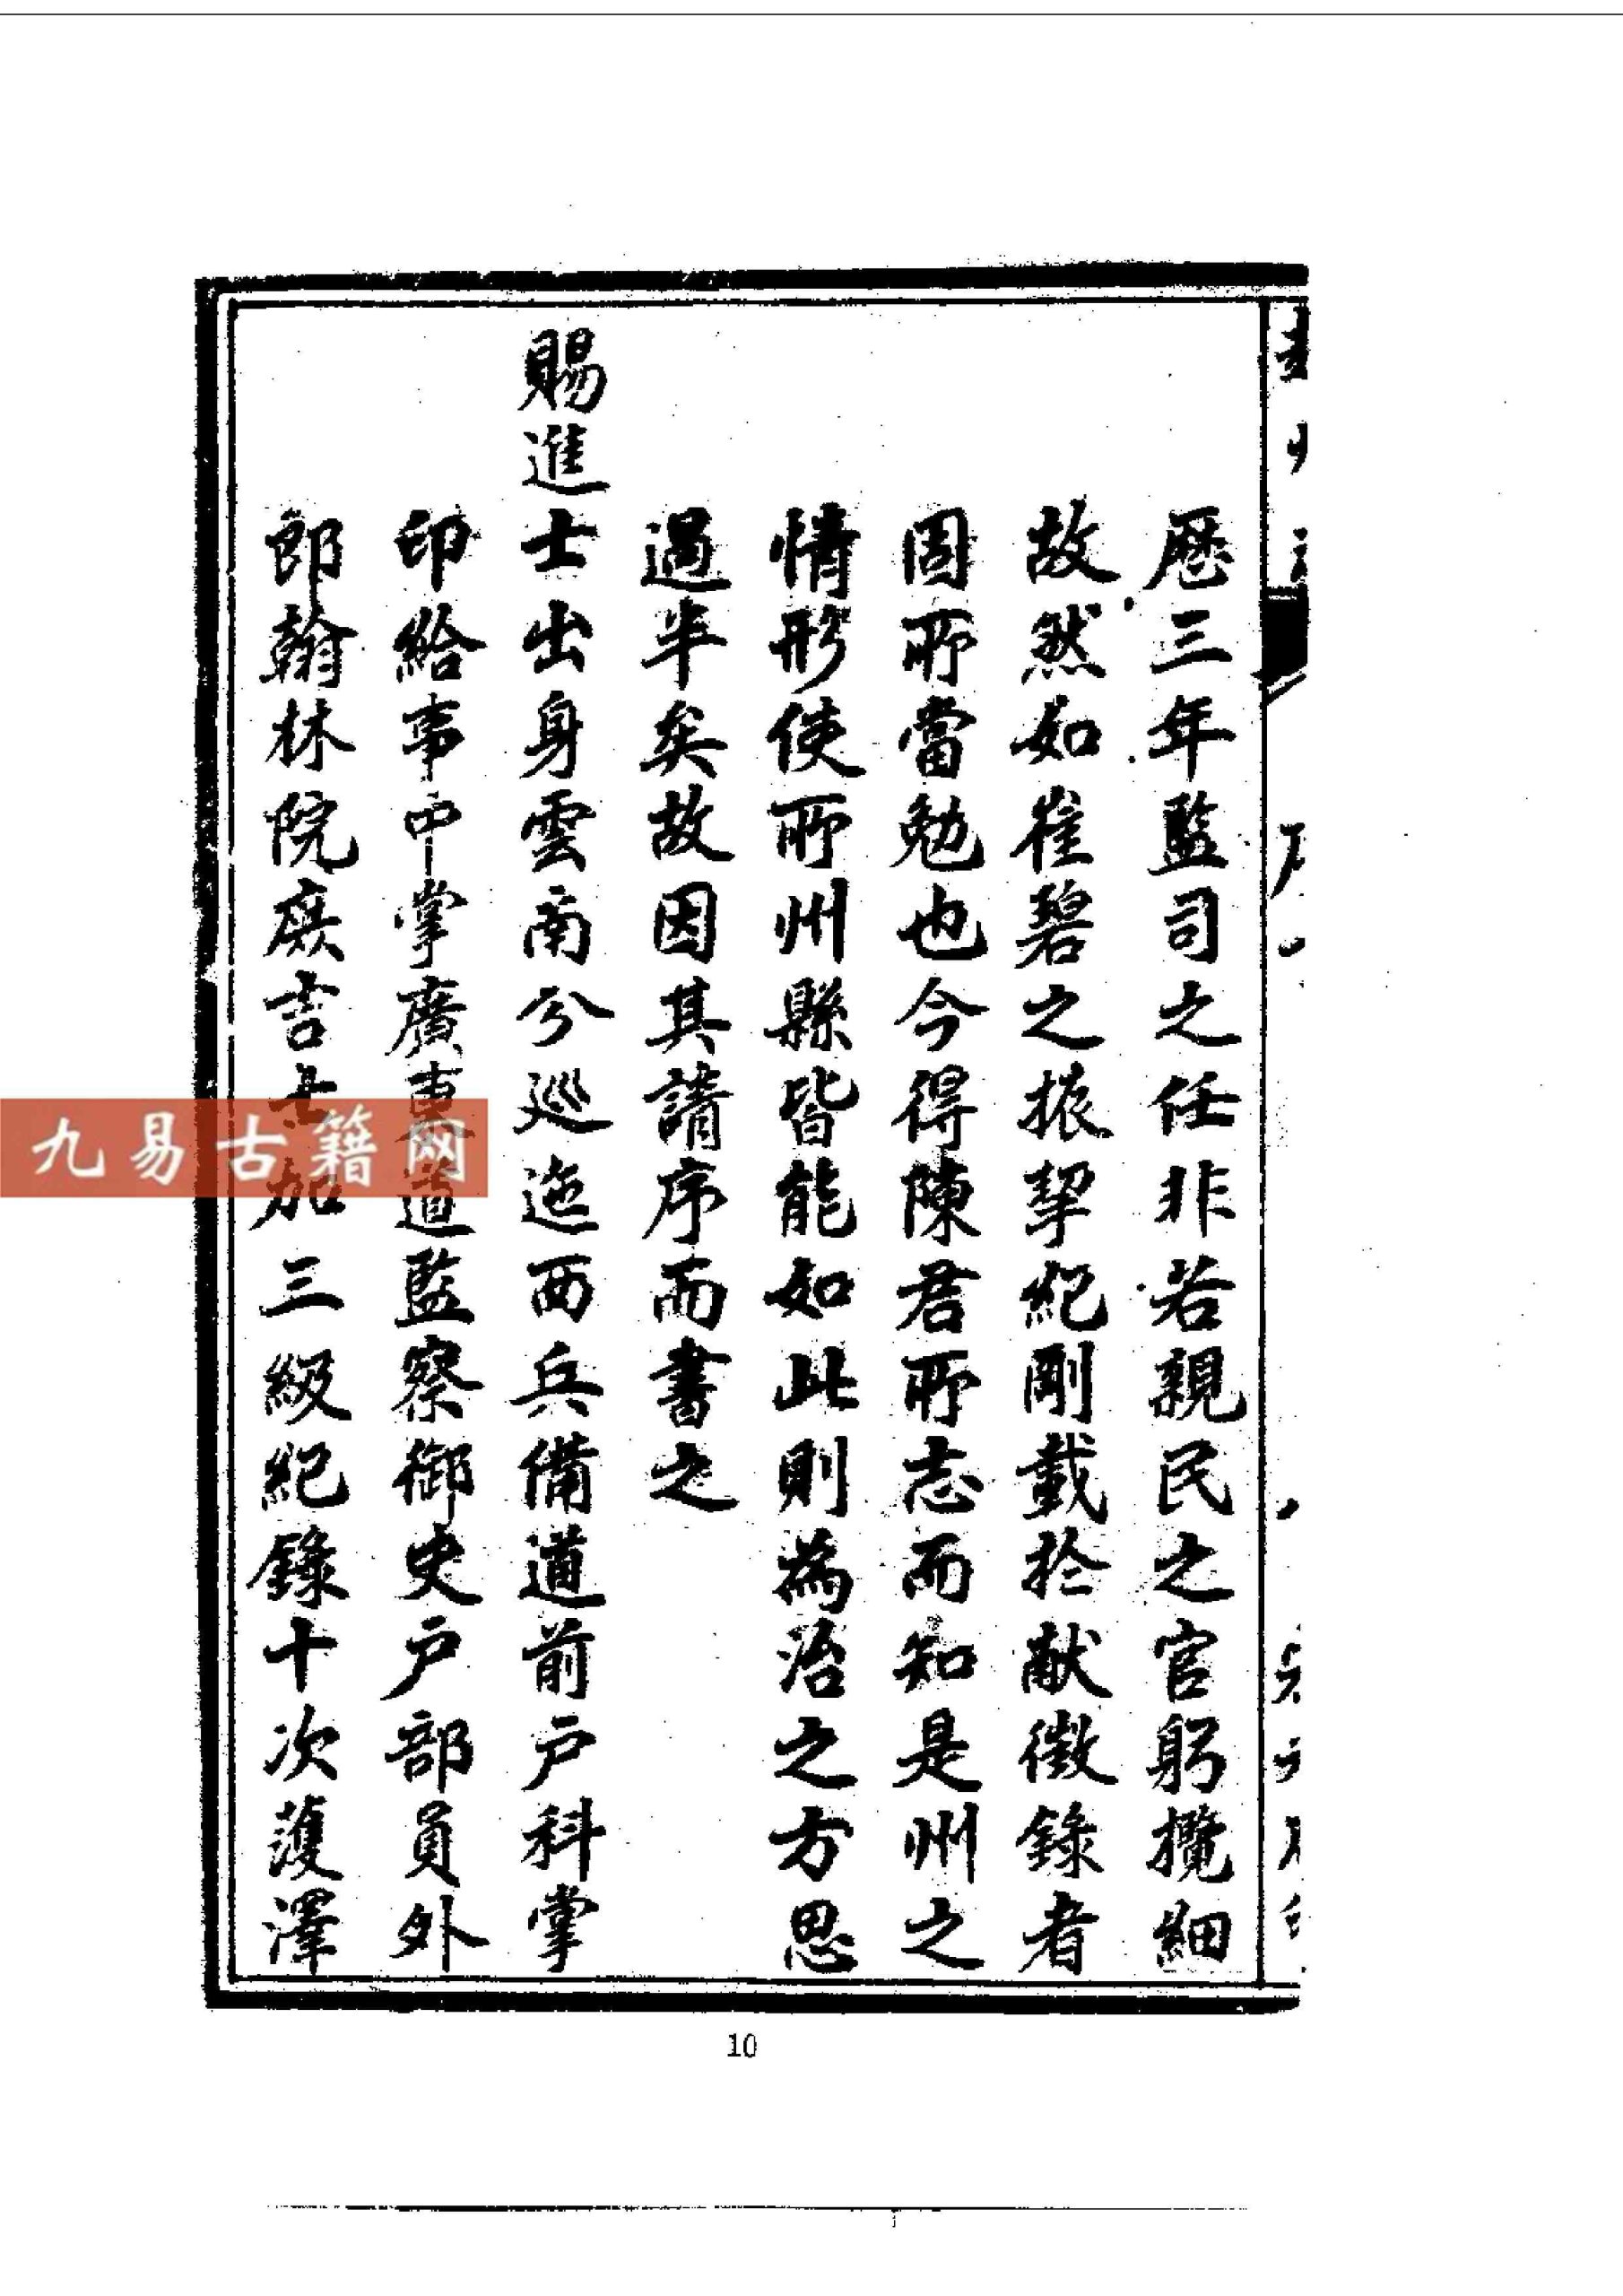 歷三年監司之任非若親民之官躬攬細
故然如崔碧之振挈紀剛載於献徵錄者
固所當勉也今得陳君所志而知是州之
情形使所州縣皆能如此則為治之方思
過半矣故因其請序而書之
賜進士出身雲南分巡迤西兵備道前户科掌
印給事中掌廣東道監察御史户部員外
郎翰林院庶吉士加三級紀錄十次護澤
九易古籍网
10